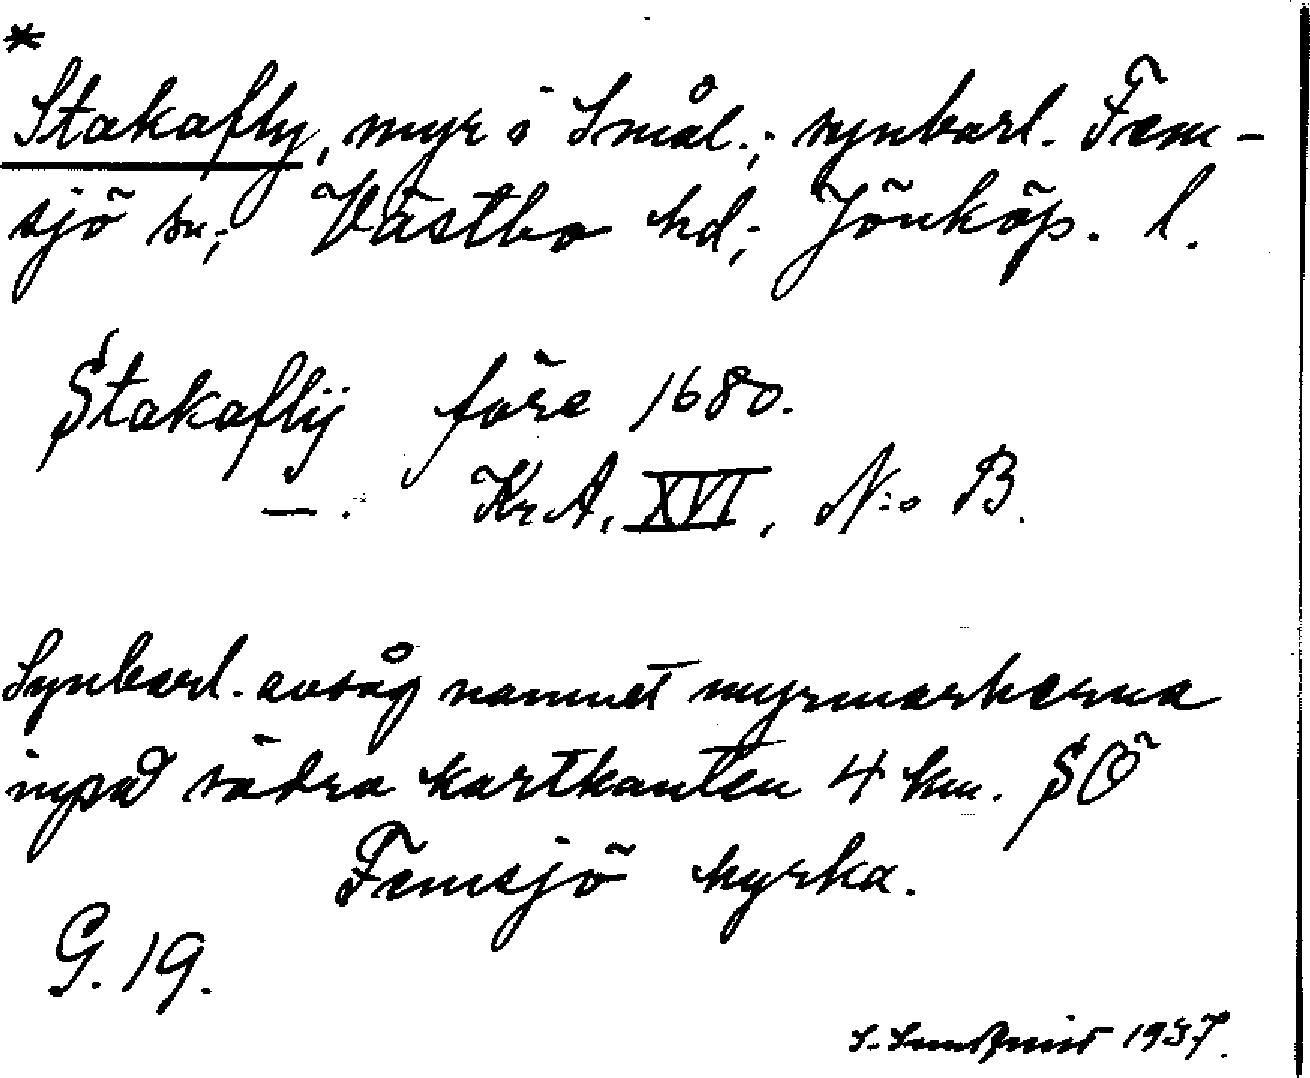 *
Stakafly, myr i Smål.; synbarl. Fem-
sjö sn; Västbo hd; Jönköp. l.
Stakaflÿ före 1680.
— . KrA, XVI, N:o B.
Synbarl. avsåg namnet myrmarkerna
inpå södra kartkanten 4 km. SÖ
Femsjö kyrka.
G. 19.
S. Sundqvist 1937.